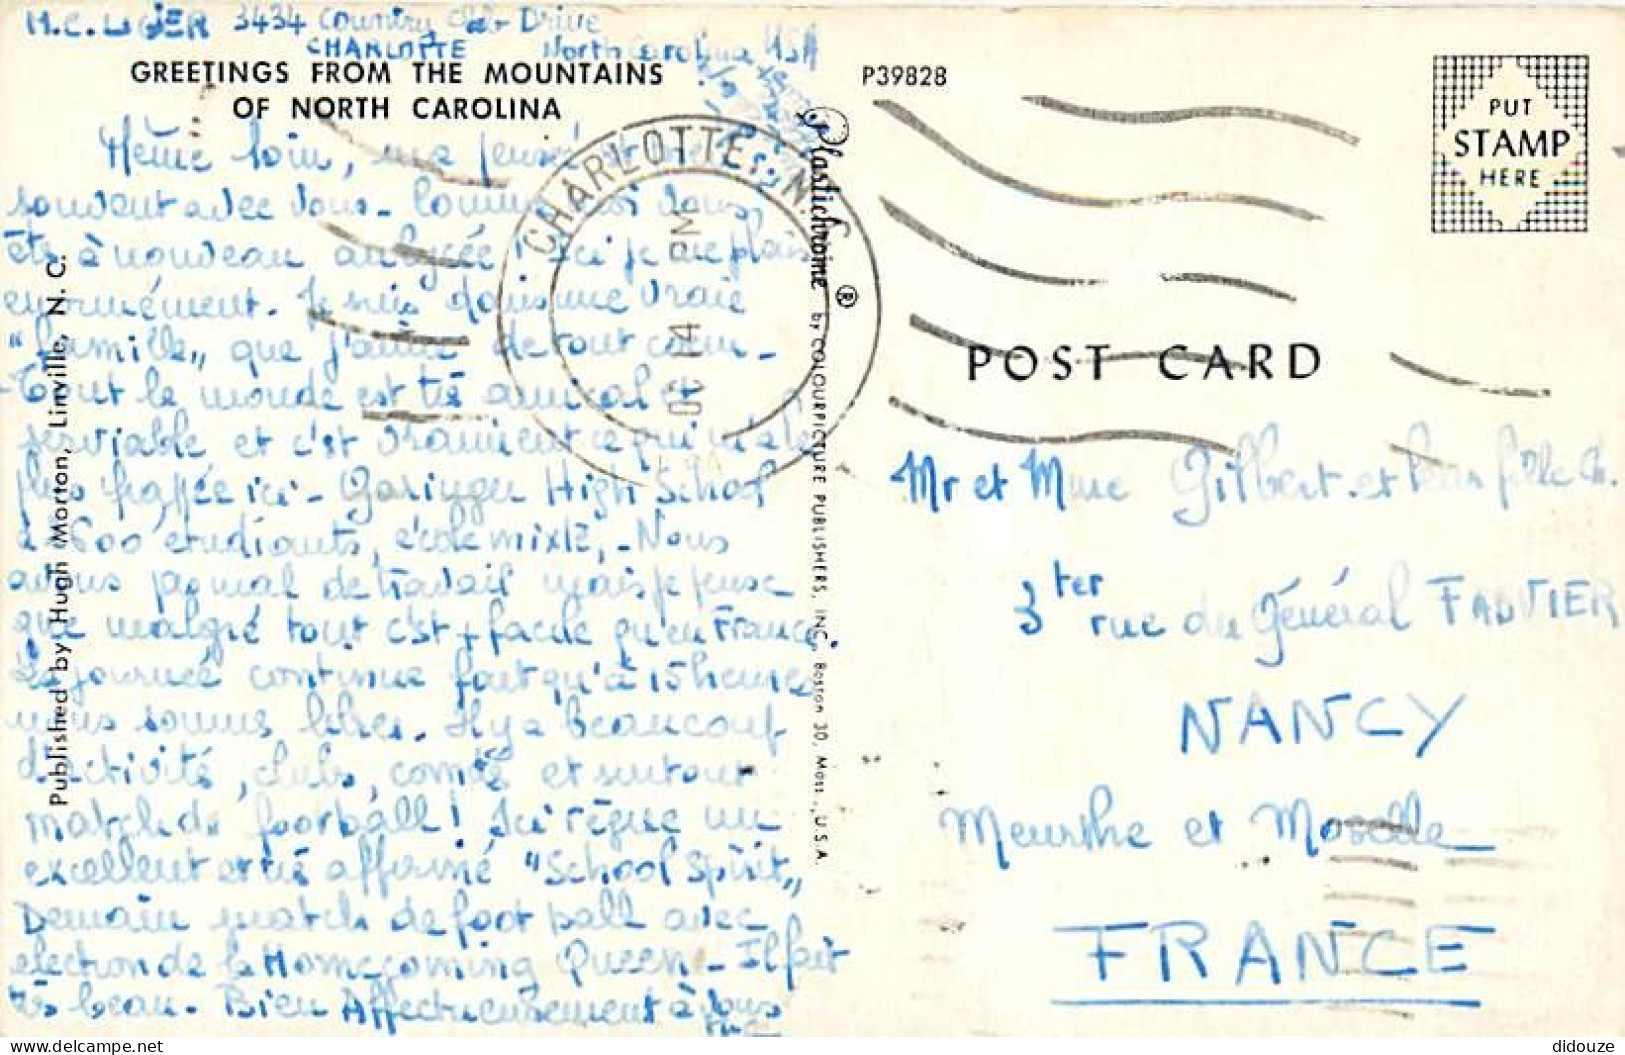 3434 Country Club Drive
CHARLOTTE North Carolina USA
GREETINGS FROM THE MOUNTAINS
OF NORTH CAROLINA
P39828
PUT
STAMP
HERE
CHARLOTTE, N.
OC 14 PM
Même loin, ma pensée
souvent avec vous - Comme vous
êtes à nouveau au lycée ! Ici je me plais
énormément. Je suis dans une vraie
"famille" que j'aime de tout coeur -
Tout le monde est très amical et
serviable et c'est vraiment ce qui m'a le
plus frappée ici - Garinger High School
étudiants, école mixte, - Nous
avons pas mal de travail mais je pense
que malgré tout c'est + facile qu'en France.
La journée continue fait qu'à 15 heures
nous sommes libres. Il y a beaucoup
d'activité, clubs, comités et surtout
match de football ! Ici règne un
excellent et très affirmé "School Spirit"
Demain match de foot ball avec
election de la Homecoming Queen - Il fait
très beau. Bien Affectueusement à vous
Published by Hugh Morton, Linville, N. C.
Plastichrome ® by COLOURPICTURE PUBLISHERS, INC., Boston 30, Mass., U.S.A.
POST CARD
Mr et Mme Gilbert et leur fille
3 ter rue du Général
NANCY
Meurthe et Moselle
FRANCE
delcampe.net
didouze